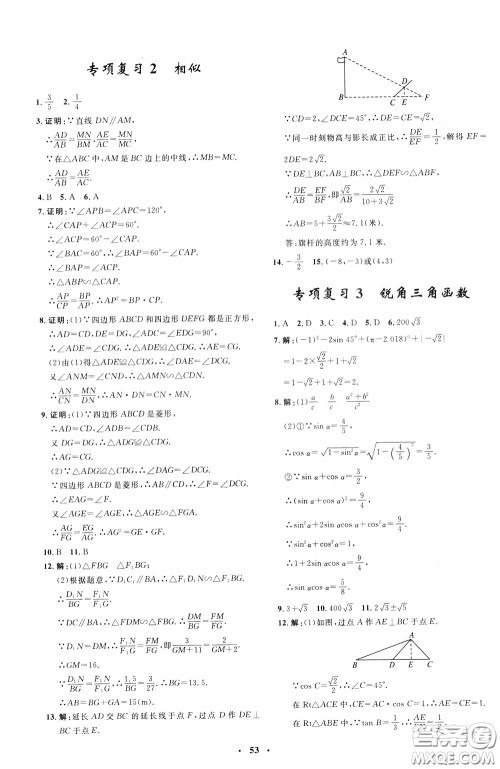 专项复习2 相似
1. 3/5 2. 1/4
3. 证明:∵直线 DN∥AM,
∴AD/AB=MN/BM,AE/AC=MN/MC.
∵在△ABC中,AM是BC边上的中线,∴MB=MC.
∴AD/AB=AE/AC.
4. B 5. A 6. A
7. 证明:∵∠APB=∠APC=120°,
∴∠CAP=60°-∠ACP.
∵∠BAC=60°,
∴∠BAP=60°-∠CAP.
∴∠BAP=∠ACP.
∴△ABP∽△CAP.
∴AP/CP=BP/AP.∴AP²=BP·CP.
8. 证明:(1)∵四边形ABCD和四边形DEFG都是正方形,
∴AD=CD,DE=DG,∠ADC=∠EDG=90°.
∴∠ADE=∠CDG.∴△ADE≌△CDG.
(2)由(1)得△ADE≌△CDG,∴∠DAE=∠DCG.
又∵∠ANM=∠CND,∴△AMN∽△CDN.
∴AN/CN=MN/DN.∴AN·DN=CN·MN.
9. 证明:(1)∵四边形ABCD是菱形,
∴AD=CD,∠ADB=∠CDB.
又DG=DG,∴△ADG≌△CDG.
∴AG=CG.
(2)∵△ADG≌△CDG,∴∠EAG=∠DCG.
∵四边形ABCD是菱形,∴AB∥CD.∴∠DCG=∠F.
∴∠EAG=∠F.
又∵∠AGE=∠AGE,∴△AEG∽△FAG.
∴AG/FG=EG/AG.∴AG²=GE·GF.
10. B 11. B
12. 解:(1)△F₁NG △F₁BG;
(2)根据题意,∵D₁C₁∥BA,∴△F₁D₁N∽△F₁BG.
∴D₁N/BG=F₁N/F₁G.
∵DC∥BA,∴△FDM∽△FBG.∴DM/BG=FM/FG.
∵D₁N=DM,∴F₁N/F₁G=FM/FG,即3/(GM+11)=2/(GM+2).
∴GM=16.
∵D₁N/BG=F₁N/F₁G,∴1.5/BG=3/27.∴BG=13.5.
∴AG=AB+BG=15(m).
13. 解:延长AD交BC的延长线于点F,过点D作DE⊥BC于点E.
A
D
B C E F
∵CD=2,∠DCE=45°,∴DE=CE=√2.
∵同一时刻物高与影长成正比,∴DE/EF=1/2,解得EF=2DE=2√2.
∵DE⊥BC,AB⊥BC,∴△DEF∽△ABF.
∴DE/AB=EF/BF,即√2/AB=2√2/(10+3√2).
∴AB=5+3√2/2≈7.1(米).
答:旗杆的高度约为7.1米.
14. -3/2 15. (-8,-3)或(4,3)
专项复习3 锐角三角函数
1. A 2. D 3. C 4. D 5. D 6. 200√3
7. 解:(-1)²-2sin 45°+(π-2 018)⁰+|-√2|
=1-2×√2/2+1+√2
=2.
8. 解:(1)a/c b/c (a²+b²)/c²
(2)①∵sin α=4/5,
∴cos α=√(1-sin²α)=√(1-(4/5)²)=3/5.
∴(sin α+cos α)²=9/4.
∴sin²α+2sin αcos α+cos²α=9/4.
∴1+2sin αcos α=9/4.
∴sin αcos α=5/8.
9. 3+√3 10. 400√3 11. 2√3±√5
12. 解:(1)如图,过点A作AE⊥BC于点E.
A
∵cos C=√2/2,∴∠C=45°.
在Rt△ACE中,CE=AC·cos C=1,∴AE=CE=1.
在Rt△ABE中,∵tan B=1/3,∴AE/BE=1/3.
53